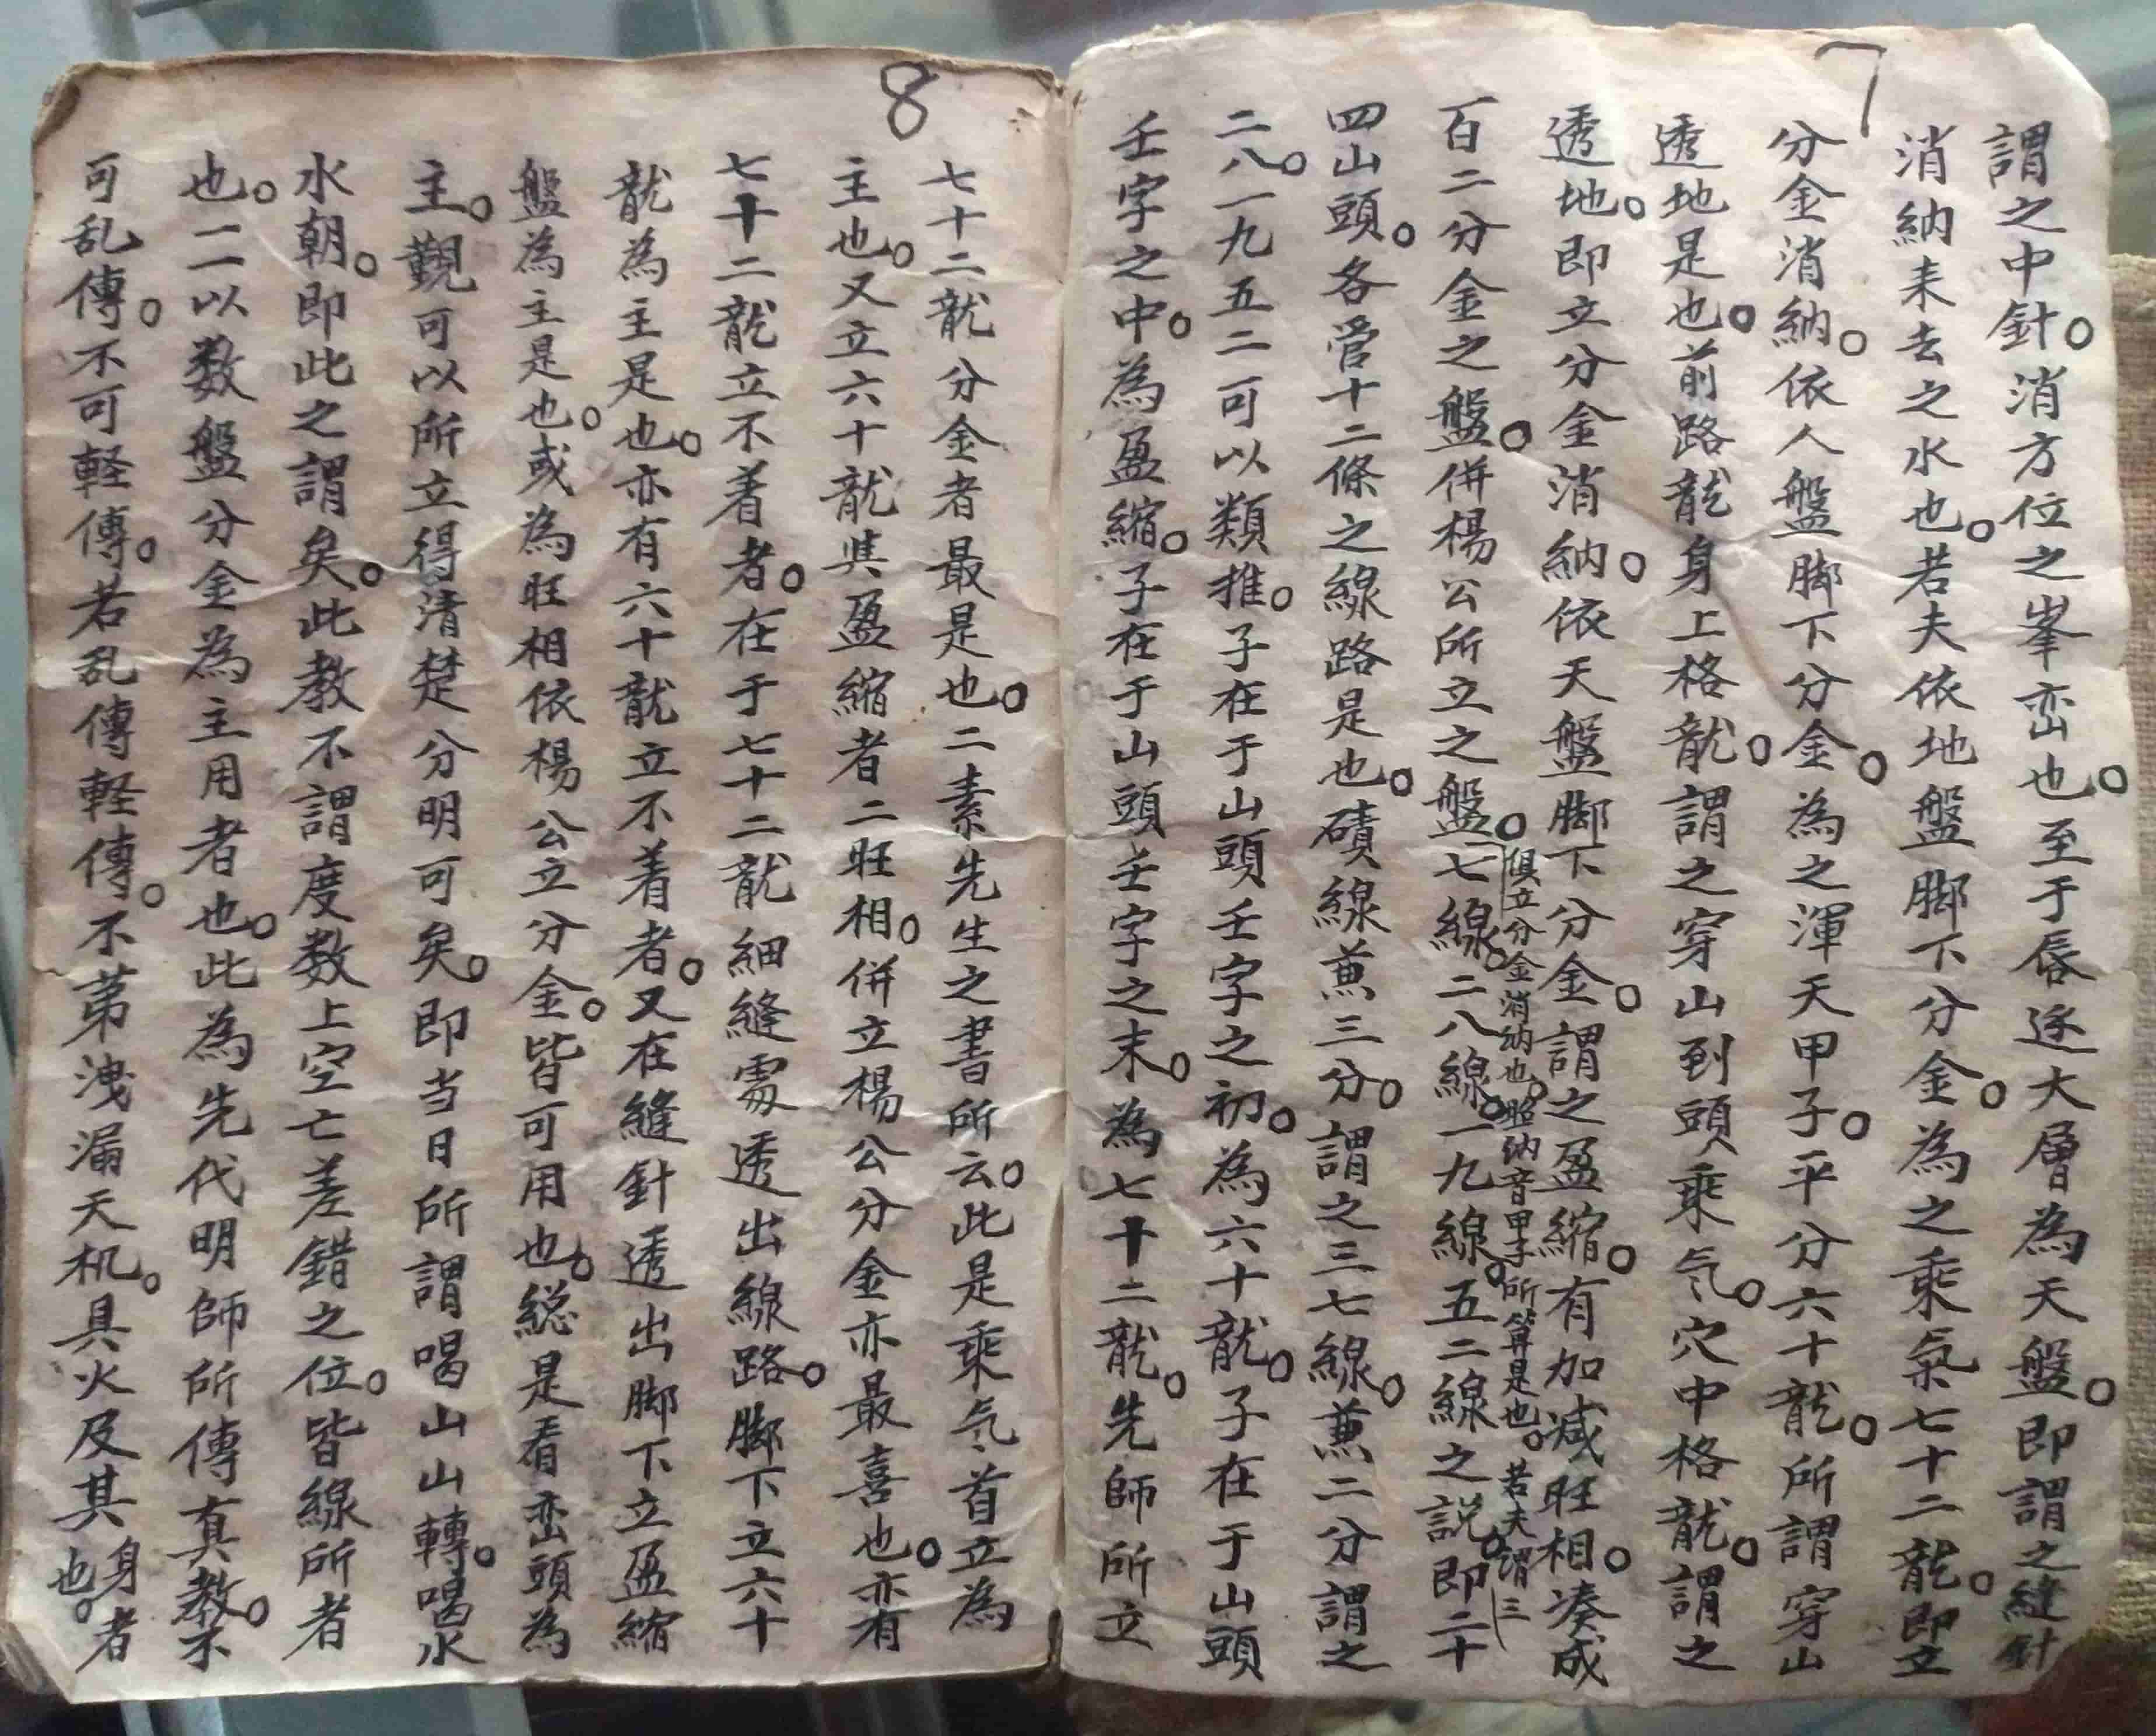 7
謂之中針。消方位之峯峦也。至于唇逐大層為天盤。即謂之縫針
消納耒去之水也。若夫依地盤脚下分金。為之乘氣七十二龍。即立
分金消納。依人盤脚下分金。為之渾天甲子。平分六十龍。所謂穿山
透地是也。前路龍身上格龍。謂之穿山到頭乘气。穴中格龍。謂之
透地。即立分金消納。依天盤脚下分金。謂之盈縮。有加减旺相。凑成
百二分金之盤。併楊公所立之盤。七線。二八線。一九線。五二線之説。即二十
俱立分金消纳也。照纳音甲子所算是也。若夫谓三
四山頭。各管十二條之線路是也。磧線兼三分。謂之三七線。兼二分謂之
二八。一九五二可以類推。子在于山頭壬字之初。為六十龍。子在于山頭
壬字之中。為盈縮。子在于山頭壬字之末。為七十二龍。先師所立
8
七十二龍分金者最是也。二素先生之書所云。此是乘气首立為
主也。又立六十龍與盈縮者二旺相。併立楊公分金亦最喜也。亦有
七十二龍立不着者。在于七十二龍細縫處透出線路。脚下立六十
龍為主是也。亦有六十龍立不着者。又在縫針透出脚下立盈縮
盤為主是也。或為旺相依楊公立分金。皆可用也。総是看峦頭為
主。觀可以所立得清楚分明可矣。即当日所謂喝山山轉。喝水
水朝。即此之謂矣。此教不謂度数上空亡差錯之位。皆線所者
也。二以数盤分金為主用者也。此為先代明師所傳真教。不
可乱傳。不可軽傳。若乱傳軽傳。不苐洩漏天机。具火及其身者
也。